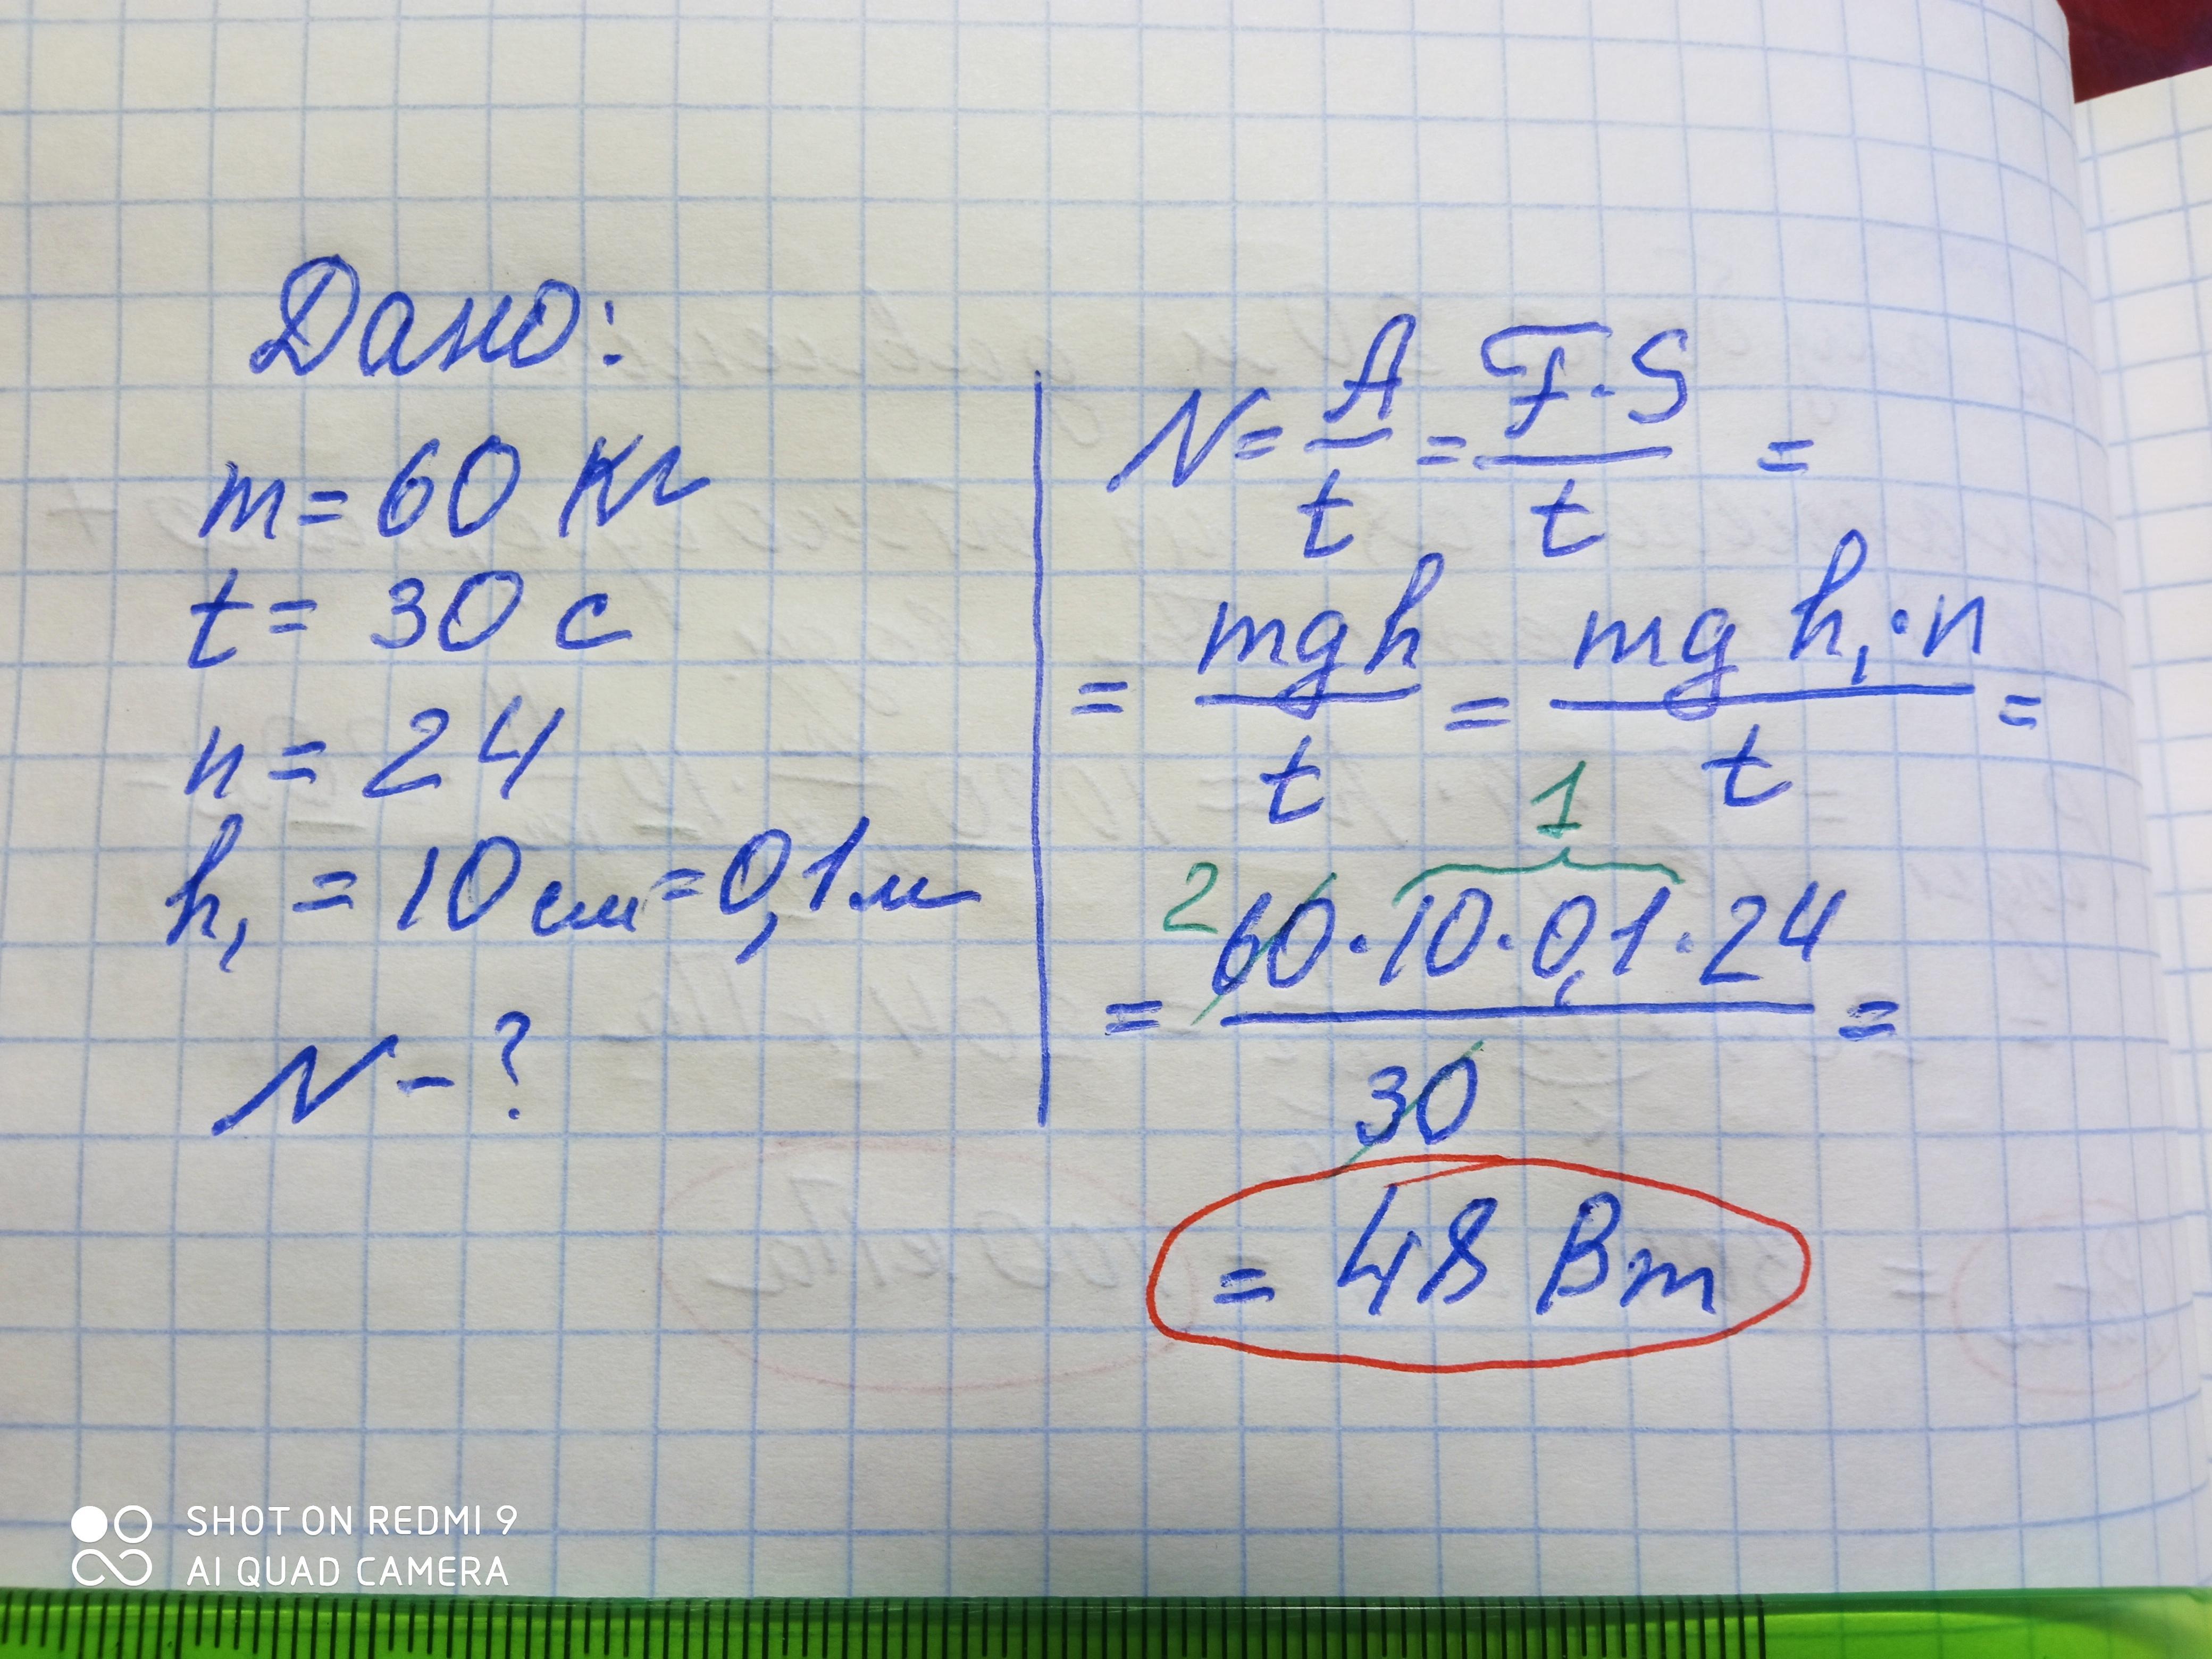 Дано:
m = 60 кг
t = 30 с
n = 24
h₁ = 10 см = 0,1 м
N - ?
N = A/t = F·S/t =
= mgh/t = mg h₁·n/t =
1
2
= 60·10·0,1·24/30 =
= 48 Вт
SHOT ON REDMI 9
AI QUAD CAMERA